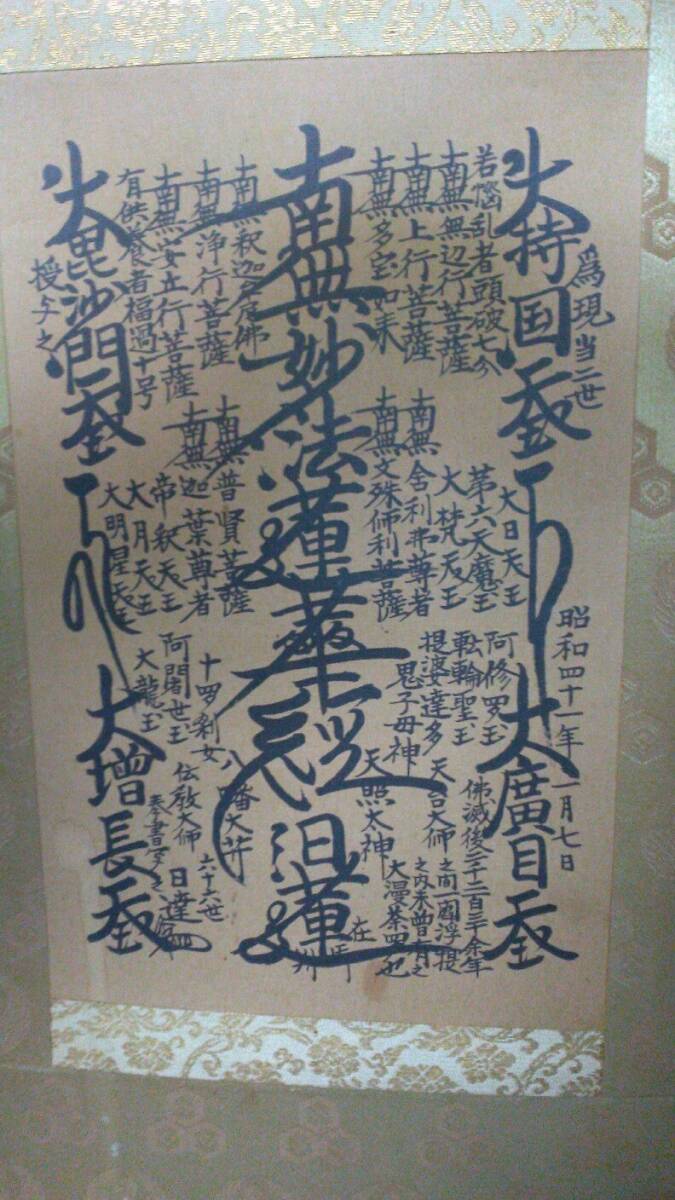 大持国天王
為現当二世
若悩乱者頭破七分
南無無辺行菩薩
南無上行菩薩
南無多宝如来
南無妙法蓮華経
日蓮
在御判
南無釈迦牟尼佛
南無浄行菩薩
南無安立行菩薩
有供養者福過十号
大毘沙門天王
授与之
大日天王
第六天魔王
大梵天王
南無舎利弗尊者
南無文殊師利菩薩
南無普賢菩薩
南無迦葉尊者
帝釈天王
大月天王
大明星天王
昭和四十一年一月七日
大廣目天王
阿修罗王
転輪聖王
提婆達多
鬼子母神
天照太神
天台大師
佛滅後二千二百三十余年
之間一閻浮提
之内未曾有之
大漫荼羅也
十罗刹女
八幡大菩薩
阿闍世王
大龍王
伝教大師
六十六世
日達
奉書写之
大増長天王